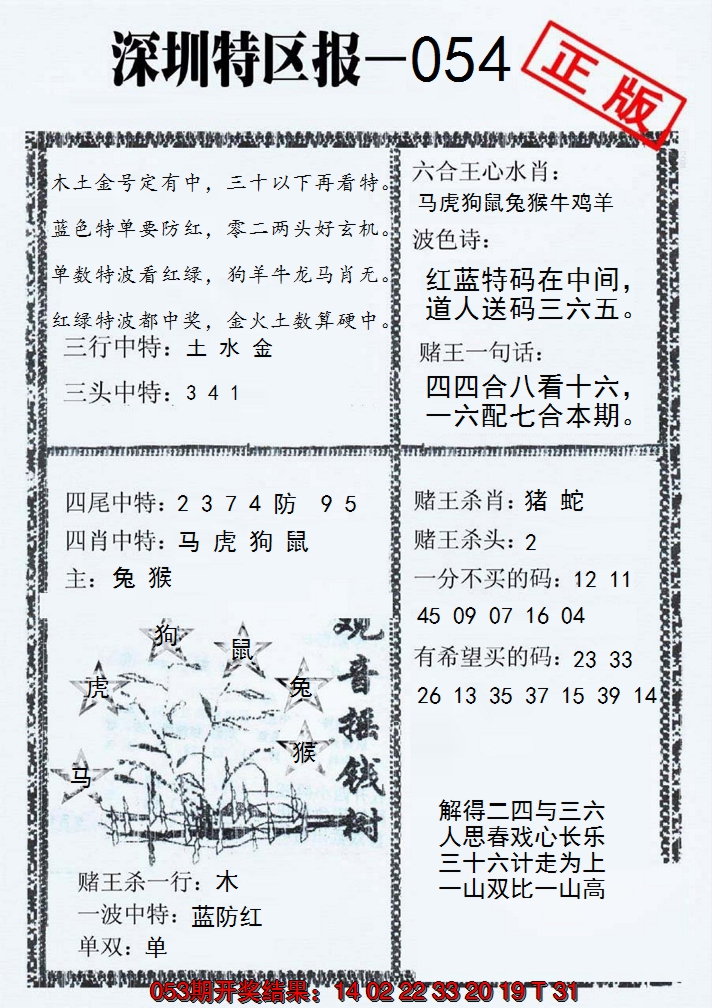 深圳特区报—054
正版
木土金号定有中，三十以下再看特。
蓝色特单要防红，零二两头好玄机。
单数特波看红绿，狗羊牛龙马肖无。
红绿特波都中奖，金火土数算硬中。
三行中特：土 水 金
三头中特：3 4 1
六合王心水肖：
马虎狗鼠兔猴牛鸡羊
波色诗：
红蓝特码在中间，
道人送码三六五。
赌王一句话：
四四合八看十六，
一六配七合本期。
四尾中特：2 3 7 4 防 9 5
四肖中特：马 虎 狗 鼠
主：兔 猴
狗
鼠
虎
兔
猴
马
观音摇钱树
赌王杀一行：木
一波中特：蓝防红
单双：单
赌王杀肖：猪 蛇
赌王杀头：2
一分不买的码：12 11
45 09 07 16 04
有希望买的码：23 33
26 13 35 37 15 39 14
解得二四与三六
人思春戏心长乐
三十六计走为上
一山双比一山高
053期开奖结果：14 02 22 33 20 19 T 31